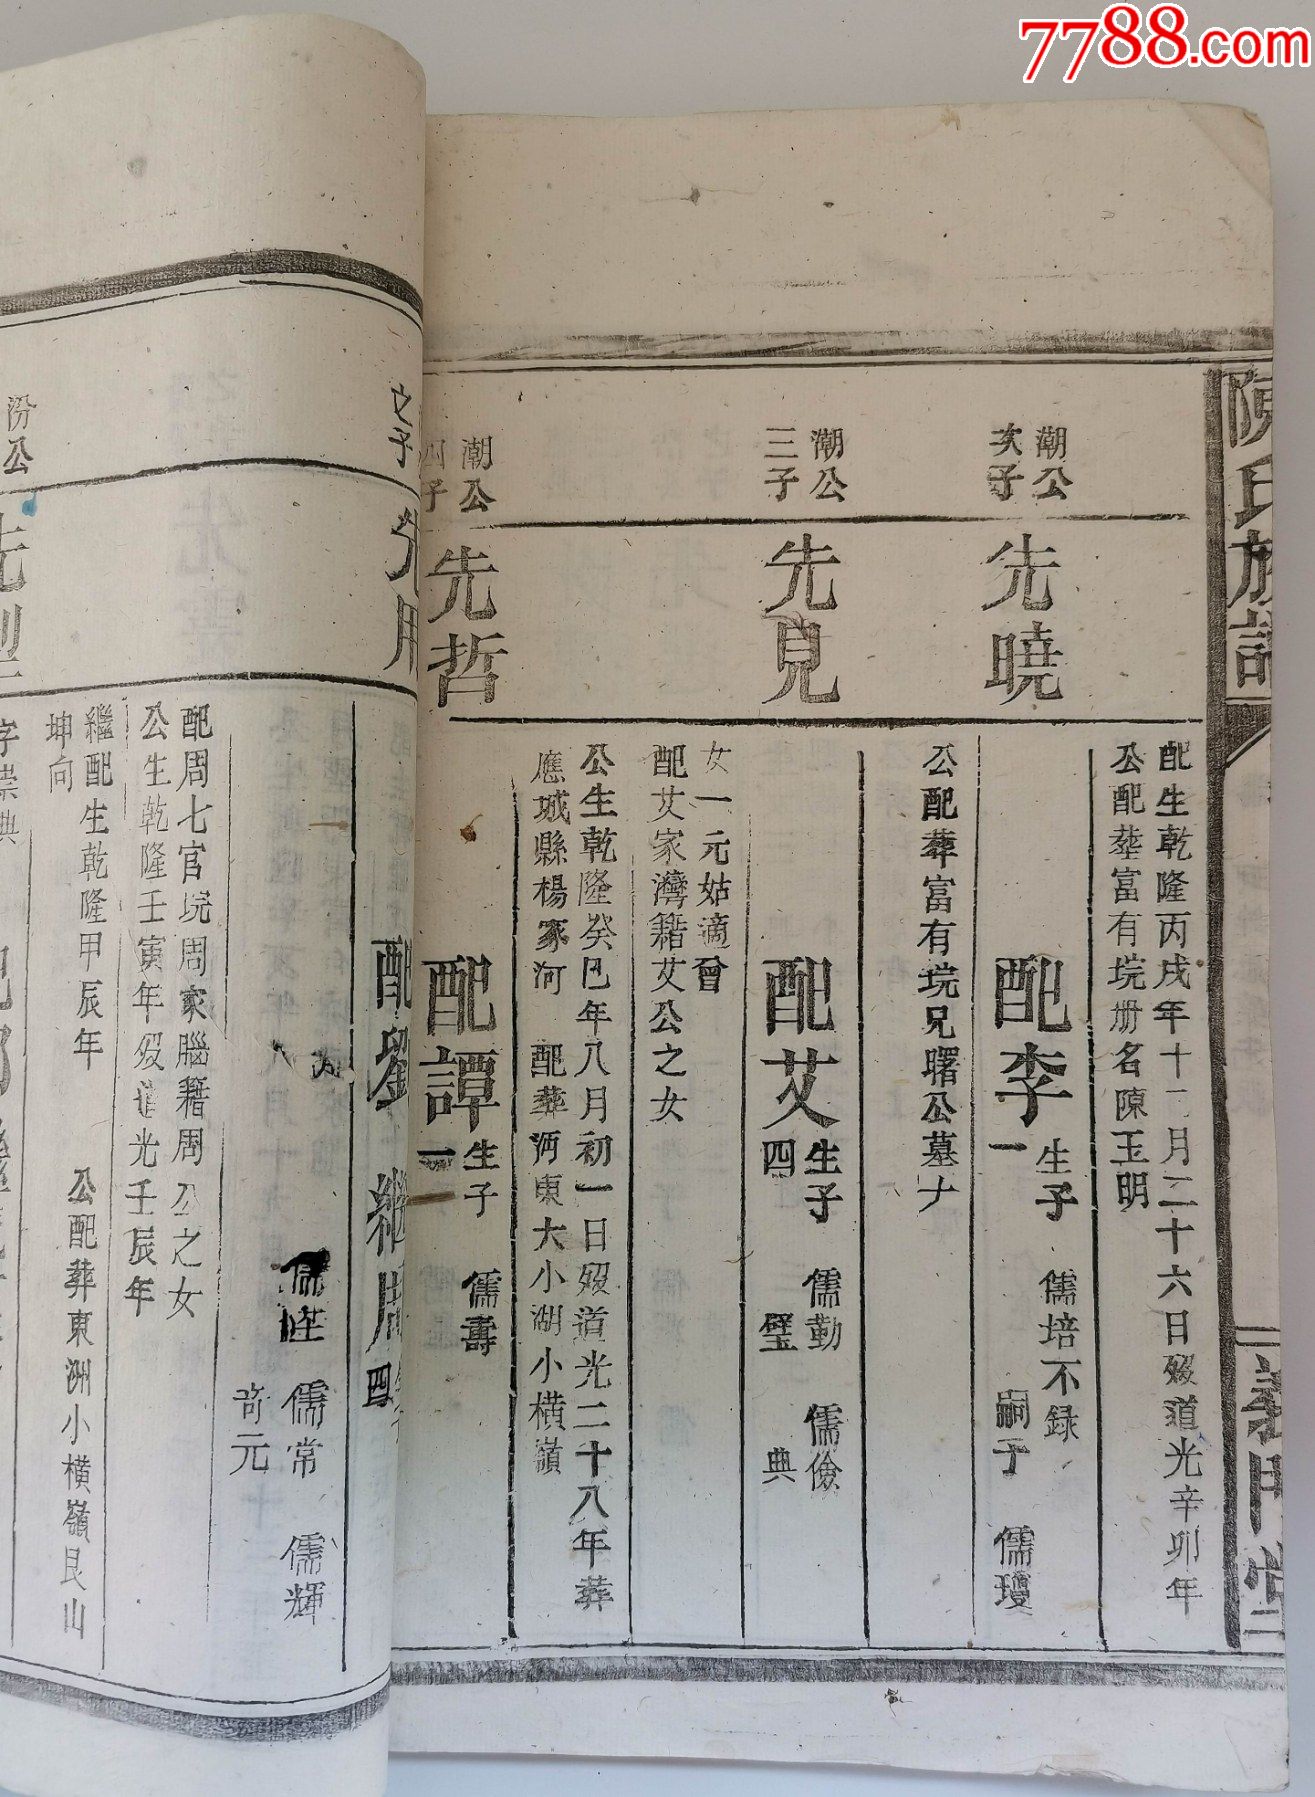 7788.com
陳氏族譜
義門堂
二
配生乾隆丙戌年十二月二十六日歿道光辛卯年
公配塟富有垸册名陳玉明
潮公
次子
先曉
配李
生子
一
儒培不録
嗣子 儒瓊
公配葬富有垸兄曙公墓左
潮公
三子
先見
配艾
生子
四
儒勤 儒儉
璧 典
女一元姑適曾
配艾家灣籍艾公之女
公生乾隆癸巳年八月初一日歿道光二十八年葬
應城縣楊家河 配葬沔東大小湖小橫嶺
潮公
四子
先哲
配譚
生子
一
儒壽
之子
先
配劉 繼周
四
儒常 儒輝
元
配周七官垸周家腦籍周公之女
公生乾隆壬寅年歿道光壬辰年
繼配生乾隆甲辰年 公配葬東洲小橫嶺艮山
坤向
汾公
先型
字崇典